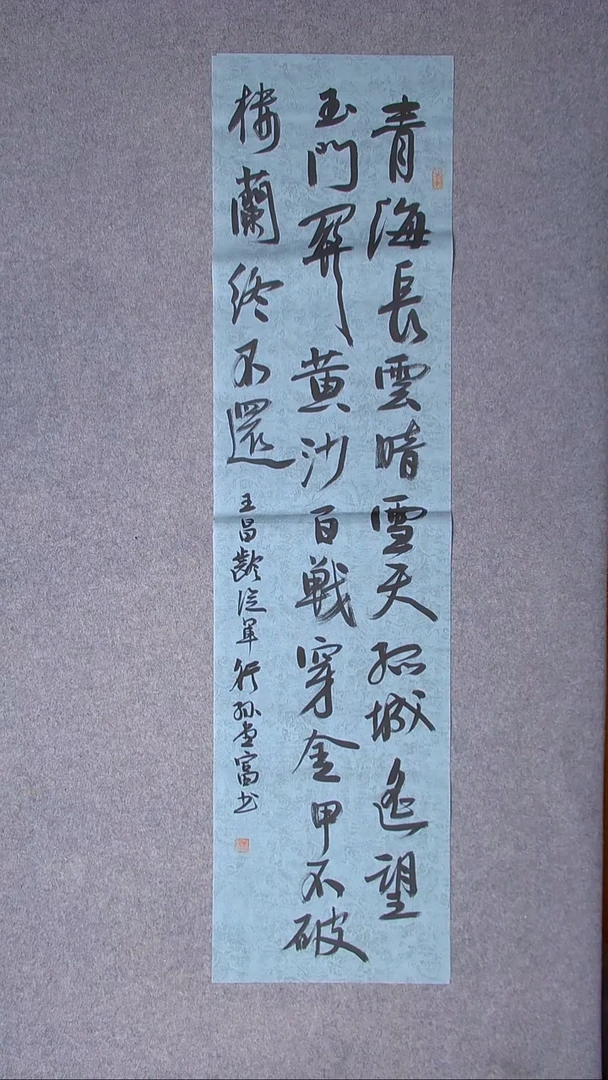 青海長雲暗雪天孤城遥望
玉門關黄沙百戦穿金甲不破
樓蘭終不還
王昌齡從軍行孫富书